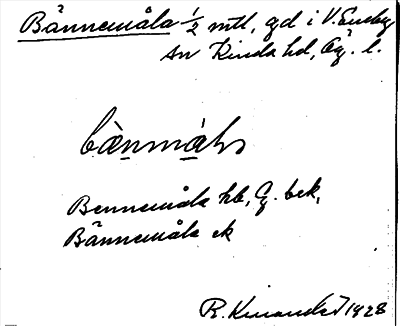 Bännemåla ½ mtl, gd i V. Eneby
sn Kinda hd, Ög. l.
Bennemåla hb, G. bek,
Bännemåla ek
R. Kinander 1928